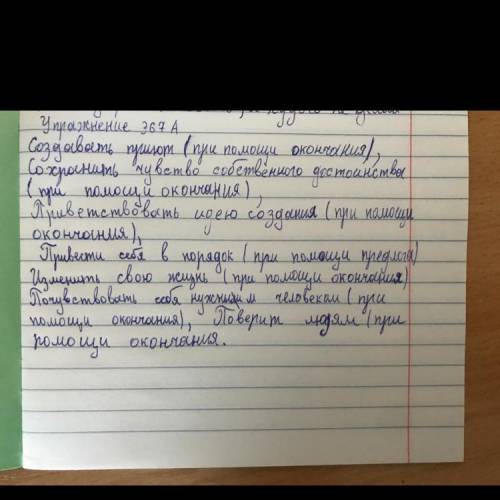 Упражнение 367 А
Создавать приют (при помощи окончания),
Сохранить чувство собственного достоинства
(при помощи окончания),
Приветствовать идею создания (при помощи
окончания),
Привести себя в порядок (при помощи предлога)
Изменить свою жизнь (при помощи окончания)
Почувствовать себя нужным человеком (при
помощи окончания), Поверит людям (при
помощи окончания.